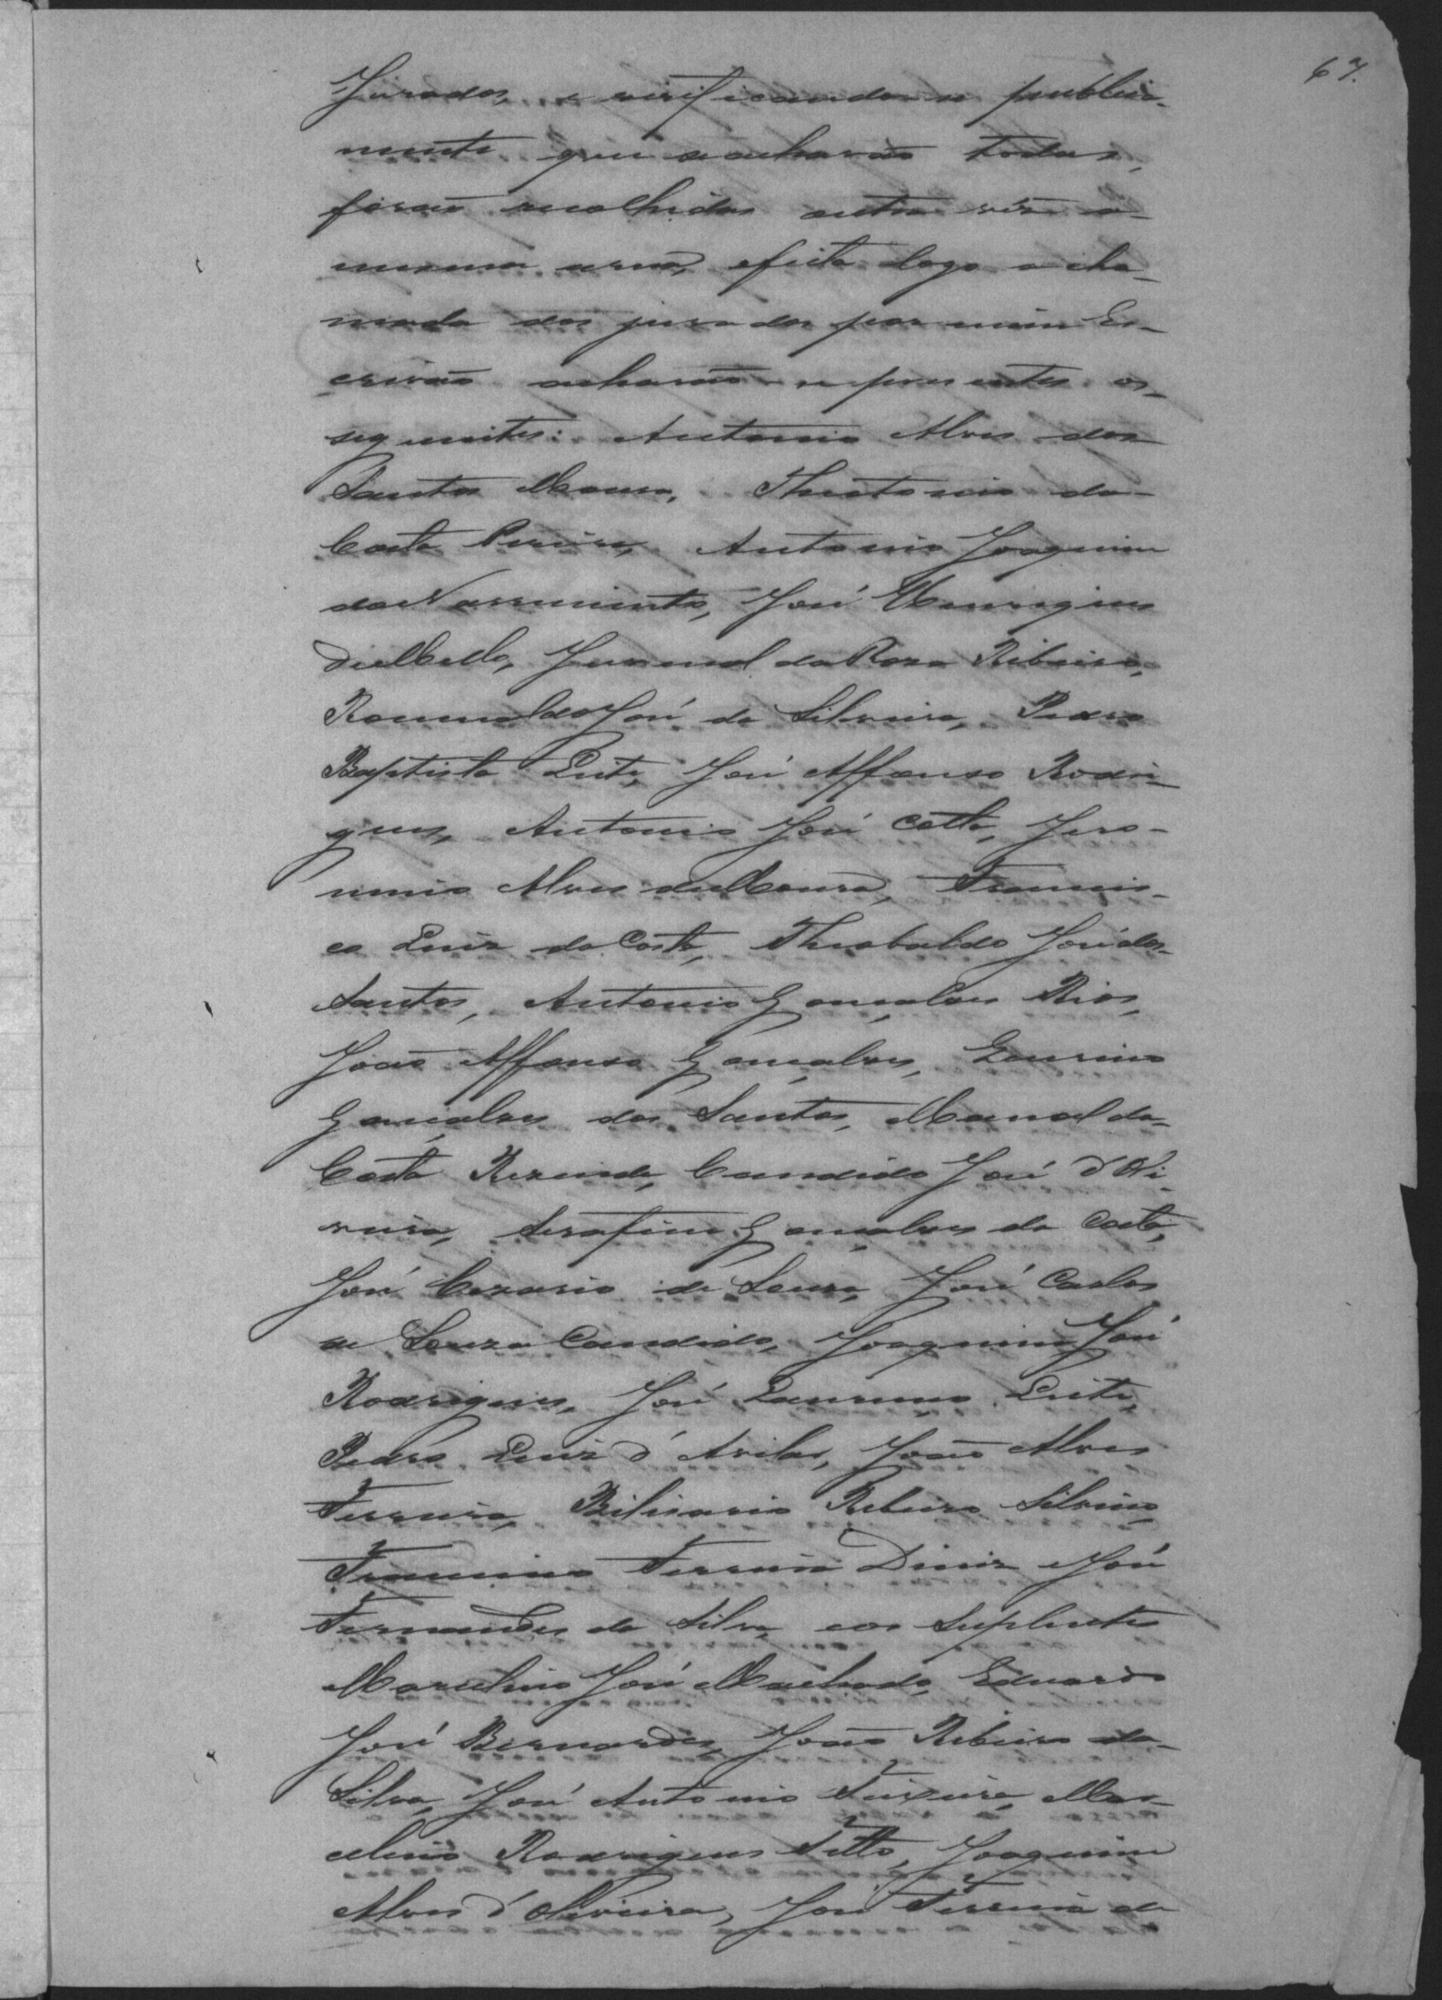 67.
Jurados, e verificando-se publica-
mente que se achavão todas,
forão recolhidas outra vêz a
mesma urna, e feita logo a cha-
mada dos jurados por mim Es-
crivão acharão-se presentes os
seguintes: Antonio Alves dos
Santos Moura, Theotonio da
Costa Pereira, Antonio Joaquim
do Nascimento, José Henriques
de Mello, Juvenal da Roza Ribeiro,
Romualdo José da Silveira, Pedro
Baptista Leite, José Affonso Rodri-
gues, Antonio José Cotta, Jero-
nimo Alves de Moura, Francis-
co Luiz da Costa, Theobaldo José dos
Santos, Antonio Gonçalves Rios,
João Affonso Gonçalves,
Gonçalves dos Santos, Manoel da
Costa Rezende, Candido José d'Oli-
veira, Serafim Gonçalves da Costa,
José Cezario de Souza, José Carlos
de Souza Candido, Joaquim José
Rodrigues, José Leite,
Pedro Luiz d'Avila, João Alves
Ferreira, Belisario Ribeiro
Ferreira Diniz e José
Fernandes da Silva, e os Suplentes
Marcelino José Machado, Eduardo
José Bernardes, João Ribeiro da
Silva, José Antonio Teixeira, Mar-
celino Rodrigues Joaquim
Alves d'Oliveira, José Ferreira da